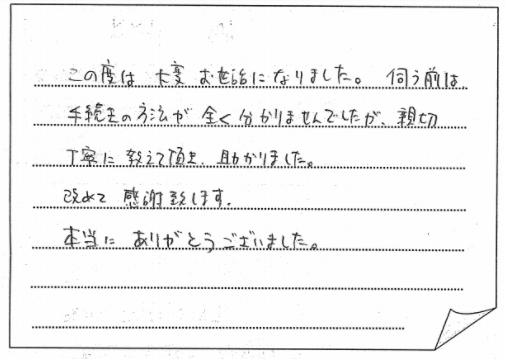 この度は 大変 お世話になりました。 伺う前は
手続きの方法が 全く分かりませんでしたが、親切
丁寧に 教えて頂き、助かりました。
改めて 感謝致します。
本当に ありがとうございました。